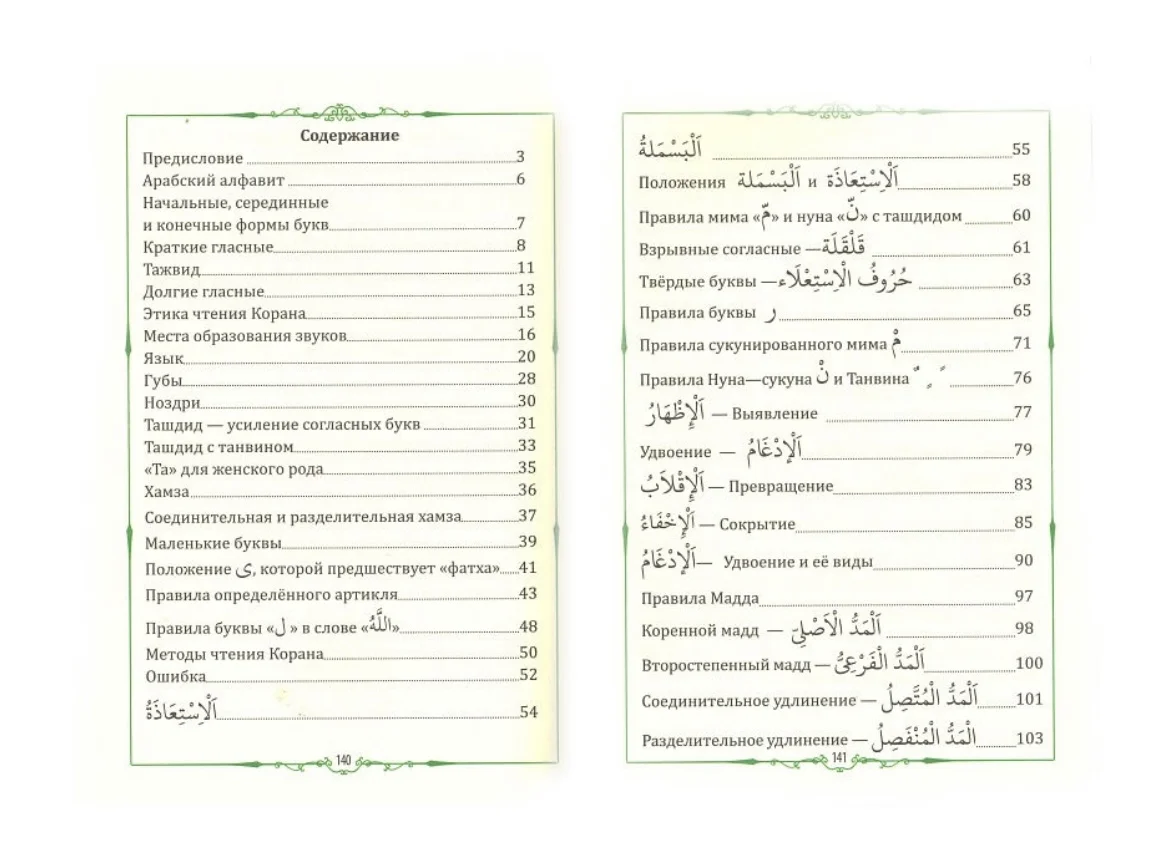 Содержание
Предисловие 3
Арабский алфавит 6
Начальные, серединные
и конечные формы букв 7
Краткие гласные 8
Тажвид 11
Долгие гласные 13
Этика чтения Корана 15
Места образования звуков 16
Язык 20
Губы 28
Ноздри 30
Ташдид — усиление согласных букв 31
Ташдид с танвином 33
«Та» для женского рода 35
Хамза 36
Соединительная и разделительная хамза 37
Маленькие буквы 39
Положение ى, которой предшествует «фатха» 41
Правила определённого артикля 43
Правила буквы «ل» в слове «اللَّهُ» 48
Методы чтения Корана 50
Ошибка 52
اَلْاِسْتِعَاذَةُ 54
140
اَلْبَسْمَلَةُ 55
Положения اَلْبَسْمَلة и اَلْاِسْتِعَاذَة 58
Правила мима «مّ» и нуна «نّ» с ташдидом 60
Взрывные согласные —قَلْقَلَة 61
Твёрдые буквы —حُرُوفُ الْاِسْتِعْلَاء 63
Правила буквы ر 65
Правила сукунированного мима مْ 71
Правила Нуна—сукуна نْ и Танвина ً ٍ ٌ 76
اَلْإِظْهَارُ — Выявление 77
Удвоение — اَلْإِدْغَامُ 79
اَلْإِقْلَابُ — Превращение 83
اَلْإِخْفَاءُ — Сокрытие 85
اَلْإِدْغَامُ— Удвоение и её виды 90
Правила Мадда 97
Коренной мадд — اَلْمَدُّ الْاَصْلِيّ 98
Второстепенный мадд —اَلْمَدُّ الْفَرْعِيُّ 100
Соединительное удлинение — اَلْمَدُّ الْمُتَّصِلُ 101
Разделительное удлинение — اَلْمَدُّ الْمُنْفَصِلُ 103
141